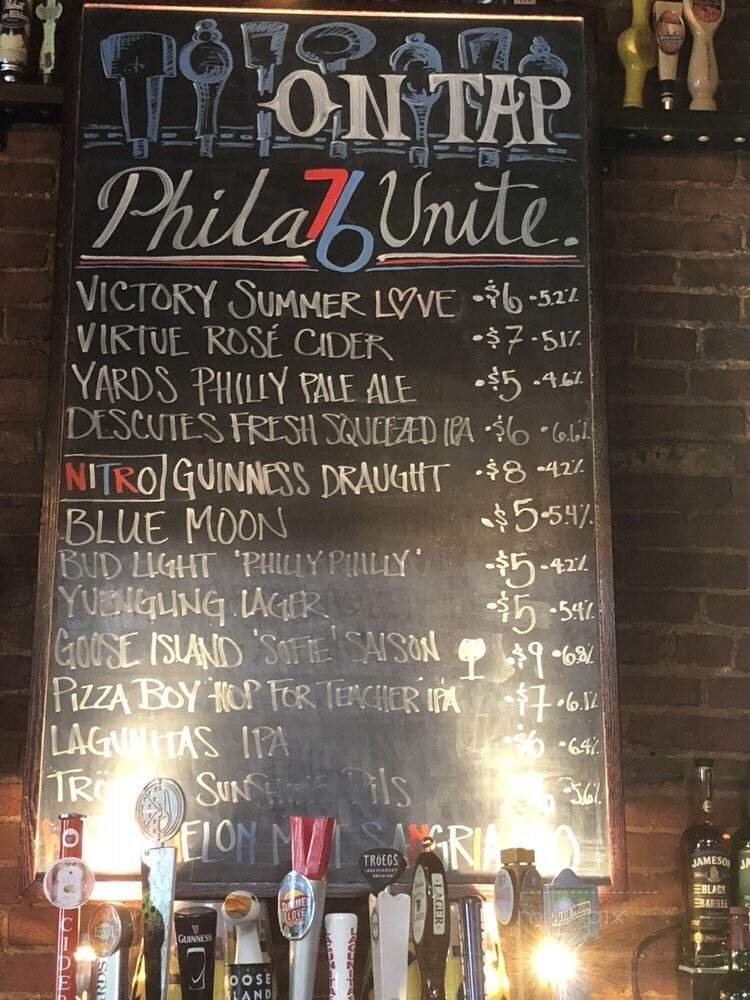 ON TAP
Phila 76 Unite.
VICTORY SUMMER LOVE •$6 •5.2%
VIRTUE ROSÉ CIDER •$7 •5.1%
YARDS PHILLY PALE ALE •$5 •4.6%
DESCUTES FRESH SQUEEZED IPA •$6 •6.6%
NITRO GUINNESS DRAUGHT •$8 •4.2%
BLUE MOON •$5 •5.4%
BUD LIGHT "PHILLY PHILLY" •$5 •4.2%
YUENGLING LAGER •$5 •5.4%
GOOSE ISLAND 'SOFIE' SAISON •$9 •6.8%
PIZZA BOY 'HOP FOR TEACHER' IPA •$7 •6.1%
LAGUNITAS IPA •$6 •6.4%
PILS 5.6%
JAMESON
BLACK
BARREL
TRÖEGS
INDEPENDENT
BREWING
SUMMER
LOVE
LAGER
GUINNESS
BLUE MOON
CIDER
GOOSE
ISLAND
LAGUNITAS